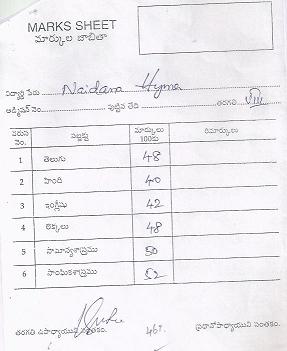 MARKS SHEET
మార్కుల జాబితా
విద్యార్థి పేరు Naidana Hyma
అడ్మిషన్ నెం. పుట్టిన తేది తరగతి VIII
వరుస నెం. సబ్జెక్టు మార్కులు 100కు రిమార్కులు
1 తెలుగు 48
2 హింది 40
3 ఇంగ్లీషు 42
4 లెక్కలు 48
5 సామాన్యశాస్త్రము 50
6 సాంఘికశాస్త్రము 52
తరగతి ఉపాధ్యాయుని సంతకం. ప్రధానోపాధ్యాయుని సంతకం.